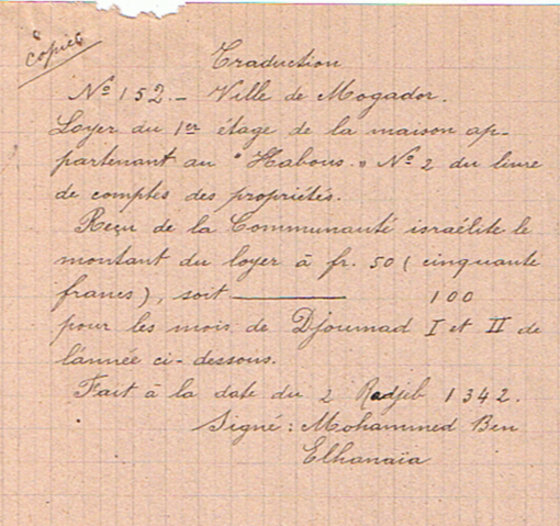 Copie
Traduction
Nº 152.- Ville de Mogador.
Loyer du 1er étage de la maison ap-
partenant au "Habous." Nº 2 du livre
de comptes des propriétés.
Reçu de la Communauté israélite le
montant du loyer à fr. 50 (cinquante
francs), soit ——— 100
pour les mois de Djoumad I et II de
l'année ci-dessous.
Fait à la date du 2 Radjeb 1342.
Signé: Mohammed Ben
Elhanaïa